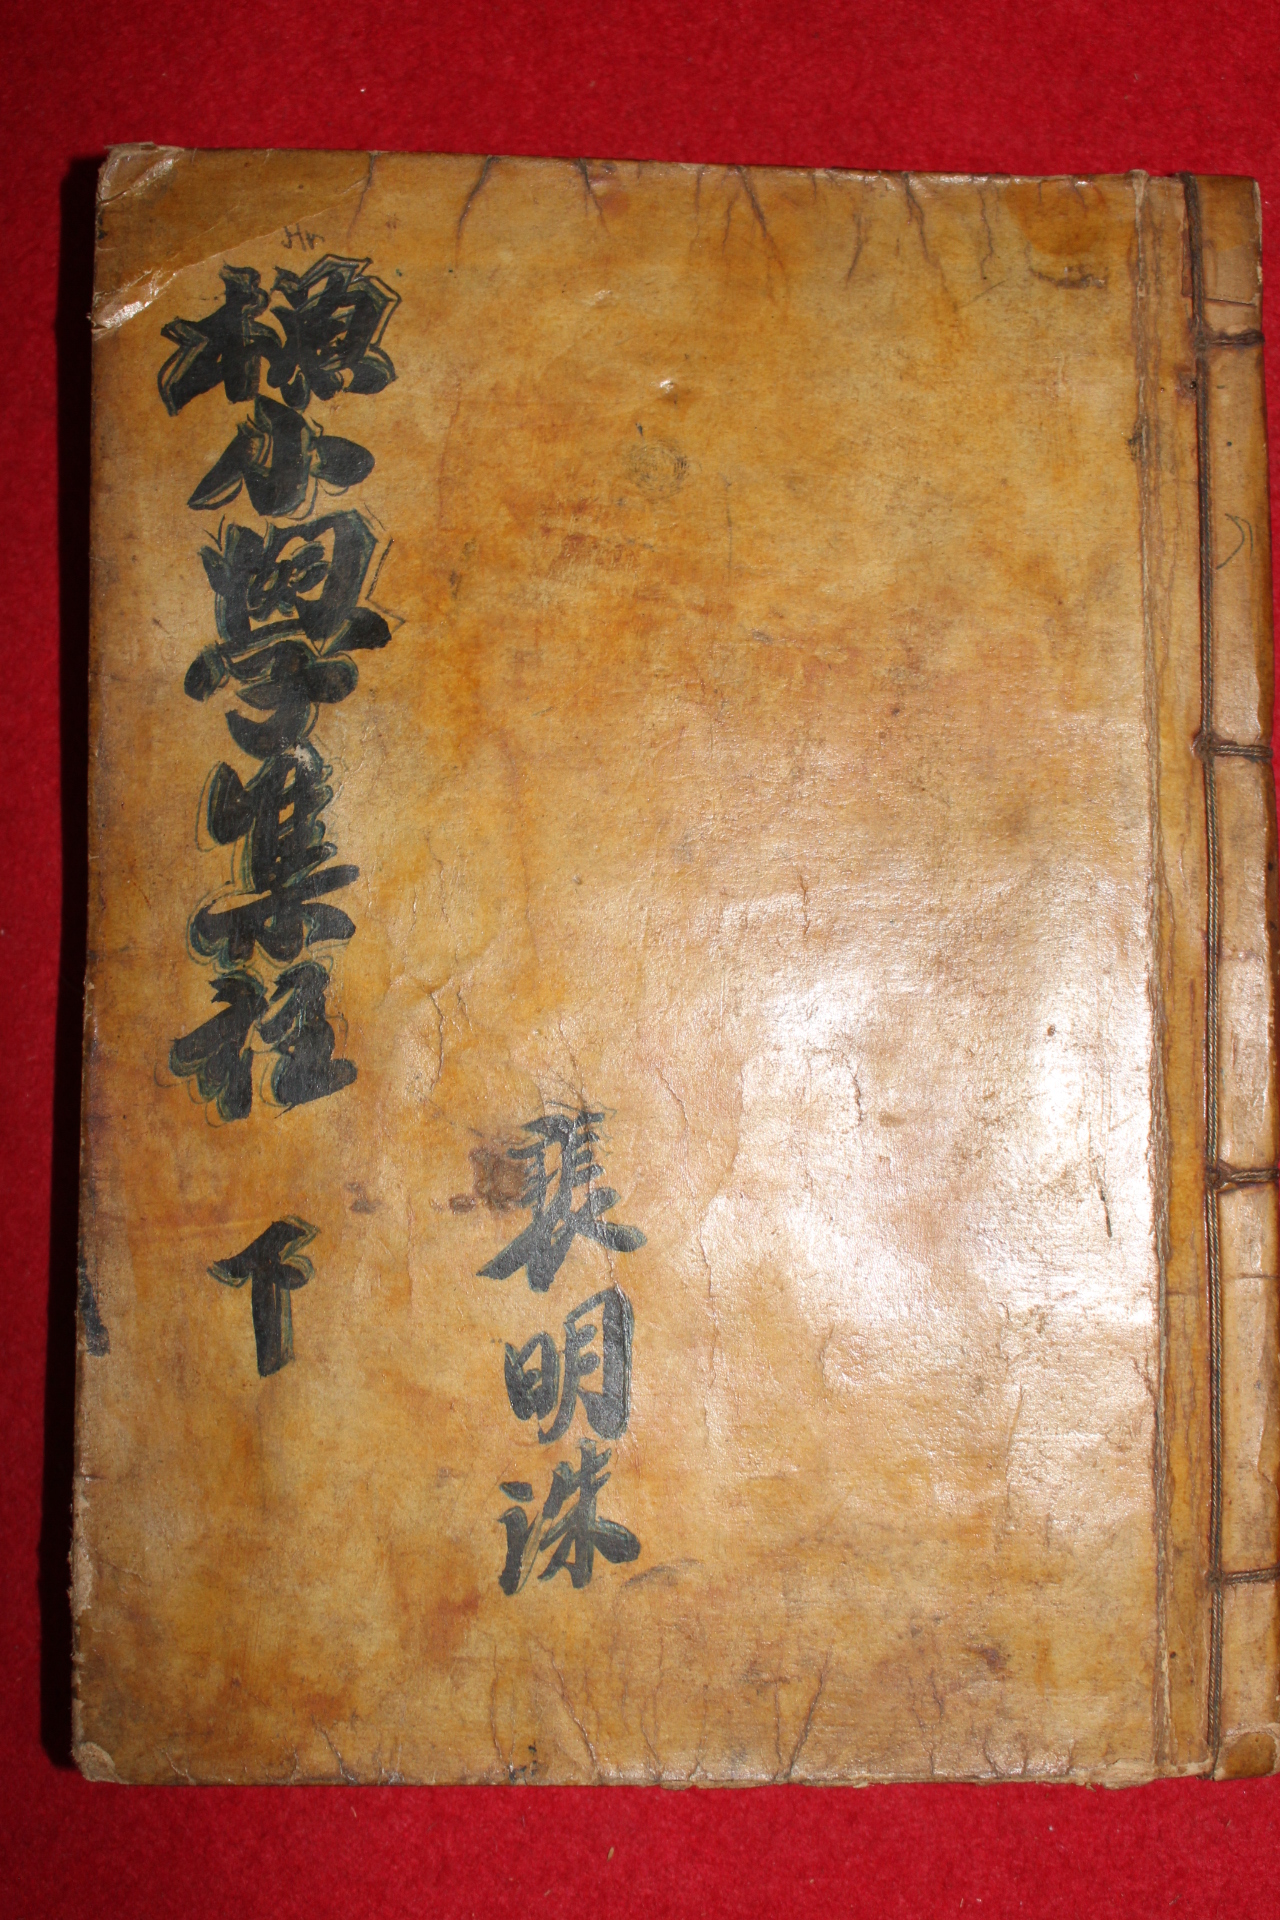 原本小學集註 下
裵明洙